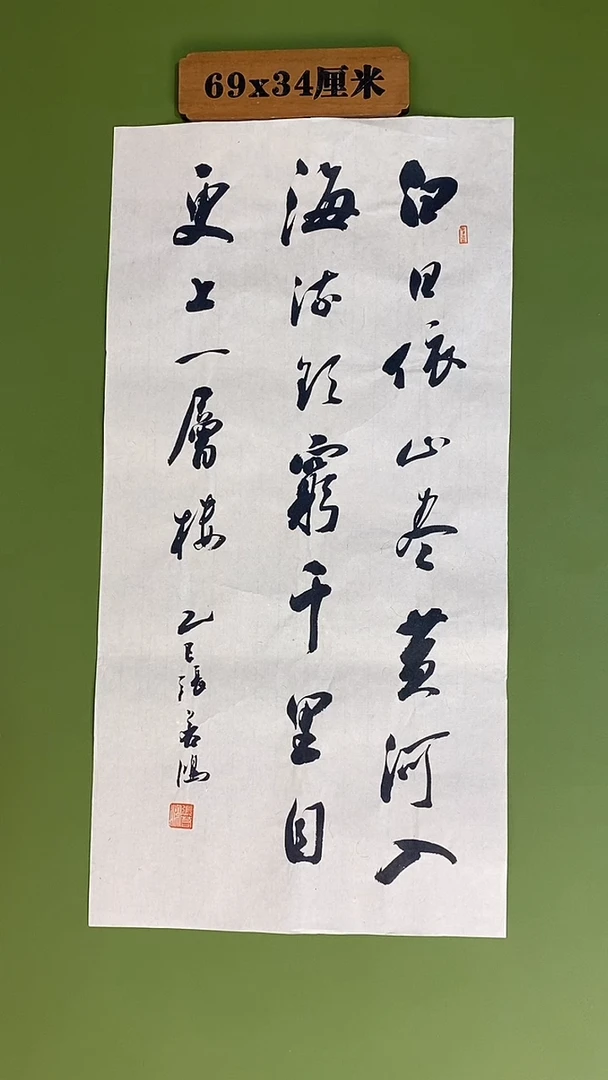 69x34厘米
白日依山尽黄河入
海流欲窮千里目
更上一層楼
乙巳張若鴻